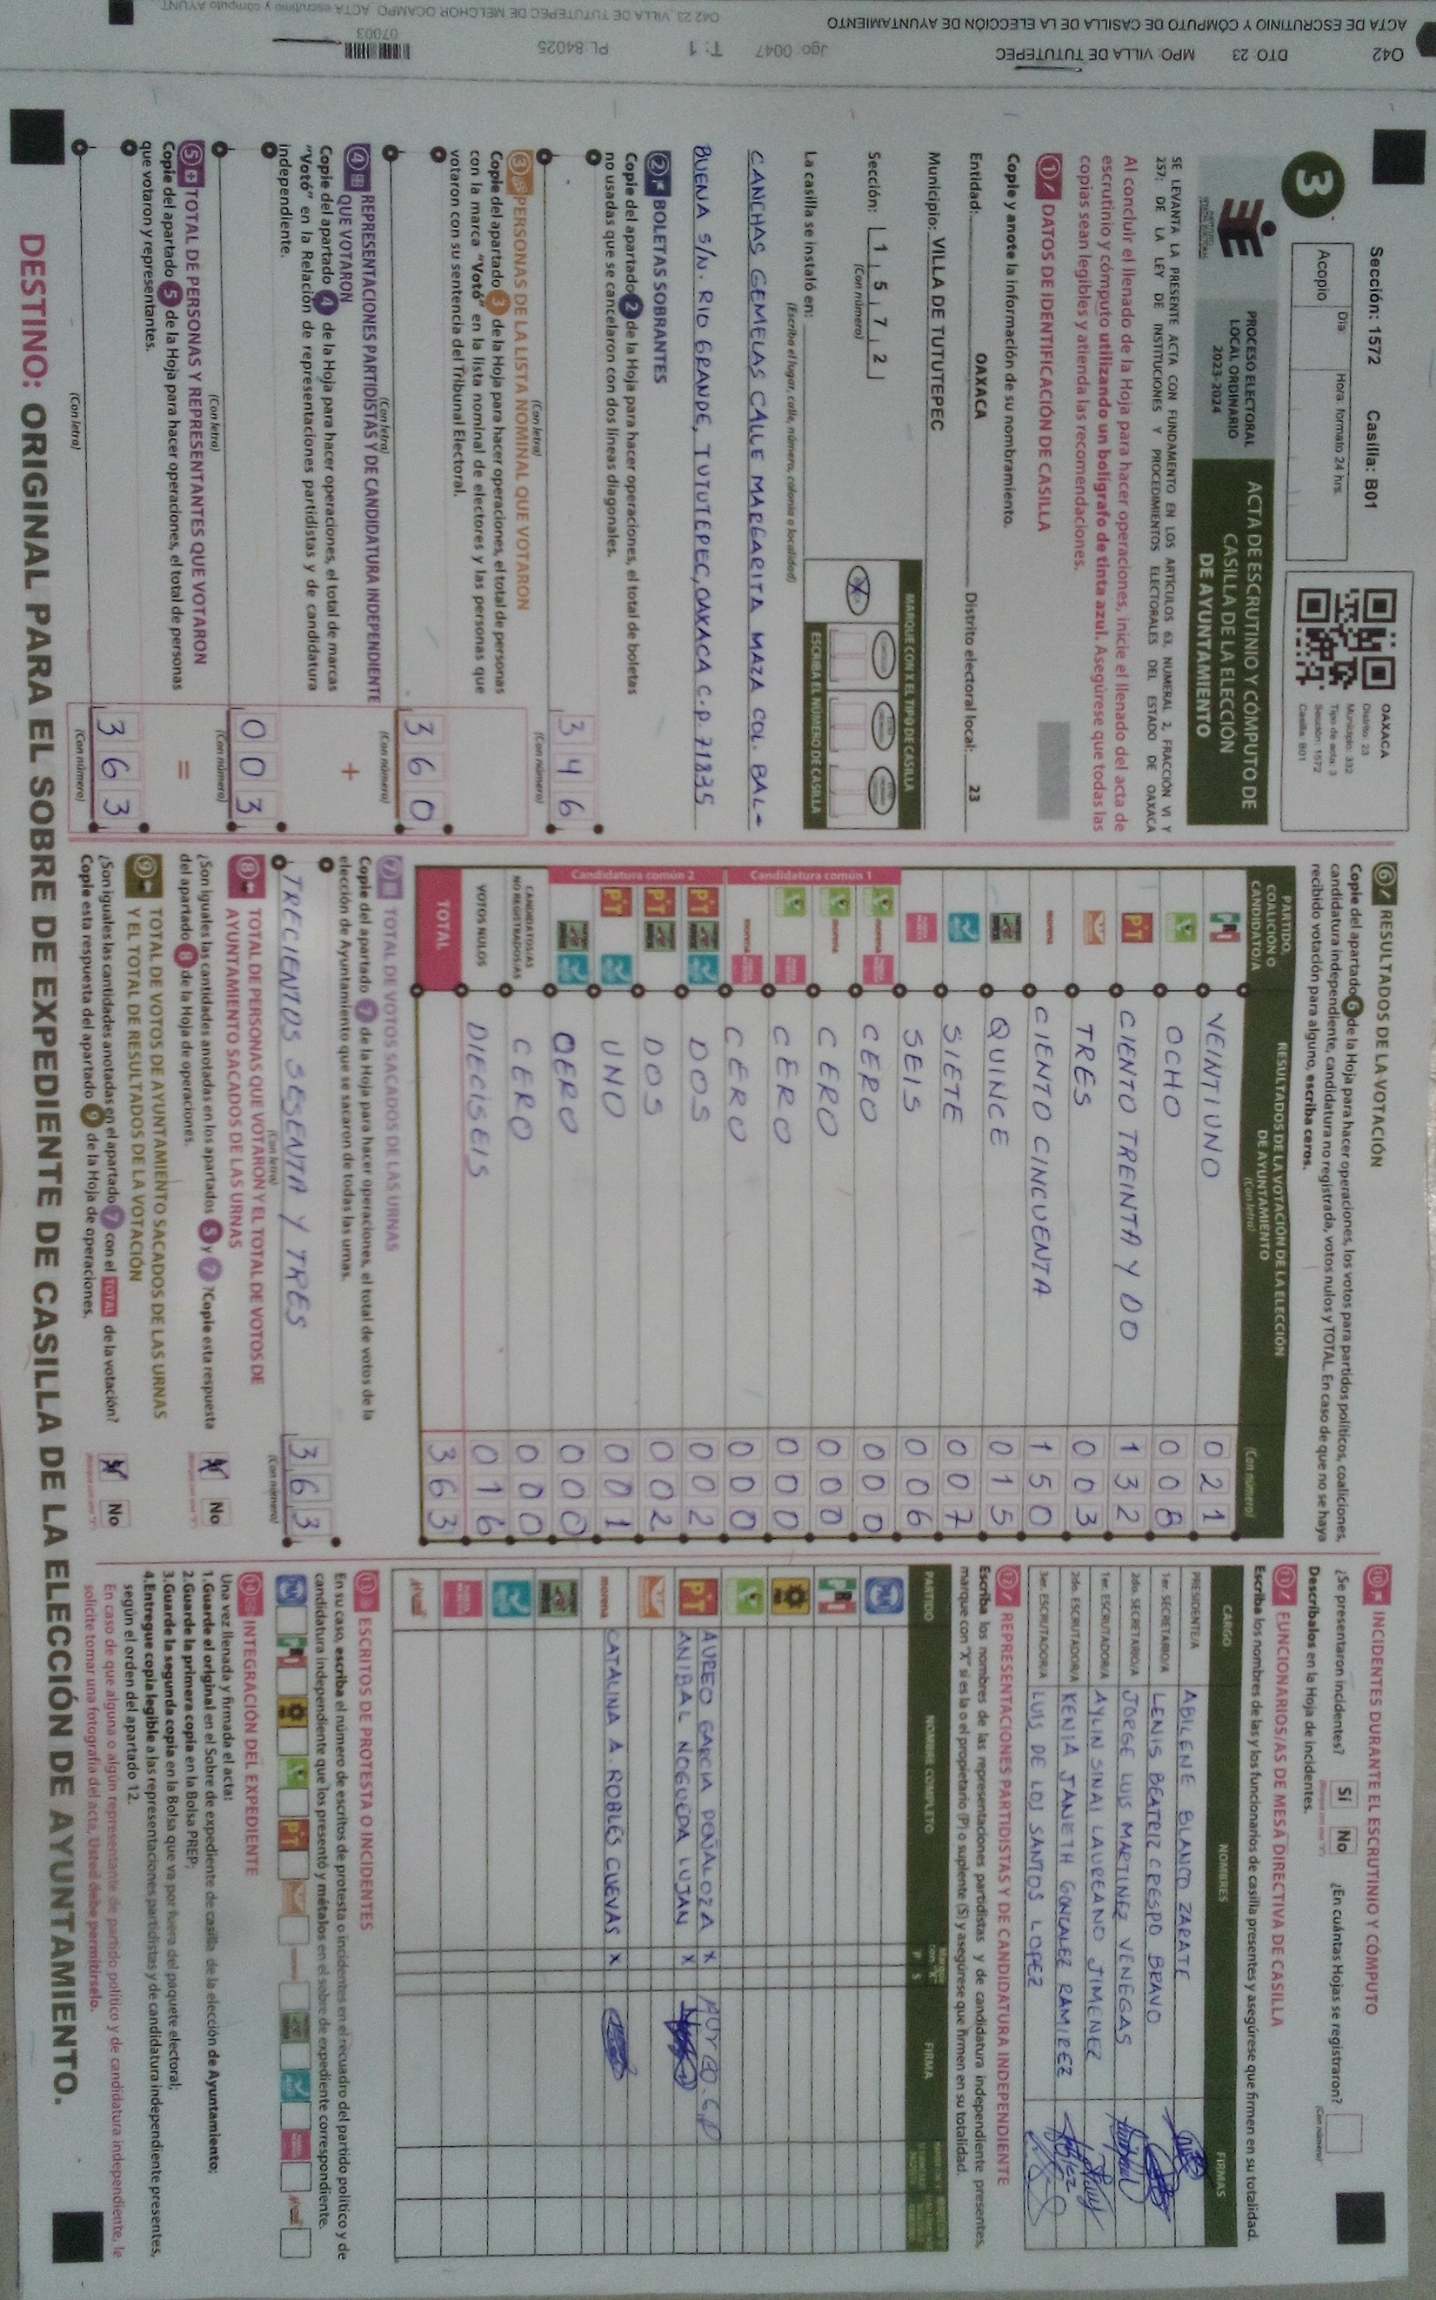 O42 DTO: 23 MPO: VILLA DE TUTUTEPEC Jgo: 0047 T: 1 PL: 84025 07003
ACTA DE ESCRUTINIO Y CÓMPUTO DE CASILLA DE LA ELECCIÓN DE AYUNTAMIENTO
Sección: 1572 Casilla: B01
3
Día: Hora: formato 24 hrs.
Acopio
OAXACA
Distrito: 23
Municipio: 332
Tipo de acta: 3
Sección: 1572
Casilla: B01
PROCESO ELECTORAL
LOCAL ORDINARIO
2023-2024
ACTA DE ESCRUTINIO Y CÓMPUTO DE
CASILLA DE LA ELECCIÓN
DE AYUNTAMIENTO
SE LEVANTA LA PRESENTE ACTA CON FUNDAMENTO EN LOS ARTÍCULOS 63, NUMERAL 2, FRACCIÓN VI Y
257; DE LA LEY DE INSTITUCIONES Y PROCEDIMIENTOS ELECTORALES DEL ESTADO DE OAXACA
Al concluir el llenado de la Hoja para hacer operaciones, inicie el llenado del acta de
escrutinio y cómputo utilizando un bolígrafo de tinta azul. Asegúrese que todas las
copias sean legibles y atienda las recomendaciones.
1 DATOS DE IDENTIFICACIÓN DE CASILLA
Copie y anote la información de su nombramiento.
Entidad: OAXACA Distrito electoral local: 23
Municipio: VILLA DE TUTUTEPEC
Sección: 1 5 7 2
(Con número)
MARQUE CON X EL TIPO DE CASILLA
ESCRIBA EL NÚMERO DE CASILLA
La casilla se instaló en:
(Escriba el lugar, calle, número, colonia o localidad)
CANCHAS GEMELAS CALLE MARGARITA MAZA COL. BAL-
BUENA S/N. RIO GRANDE, TUTUTEPEC, OAXACA C.P. 71835
2 BOLETAS SOBRANTES
Copie del apartado 2 de la Hoja para hacer operaciones, el total de boletas
no usadas que se cancelaron con dos líneas diagonales.
346
(Con letra) (Con número)
3 PERSONAS DE LA LISTA NOMINAL QUE VOTARON
Copie del apartado 3 de la Hoja para hacer operaciones, el total de personas
con la marca "Votó" en la lista nominal de electores y las personas que
votaron con su sentencia del Tribunal Electoral.
360
(Con letra) (Con número)
4 REPRESENTACIONES PARTIDISTAS Y DE CANDIDATURA INDEPENDIENTE
QUE VOTARON
+
Copie del apartado 4 de la Hoja para hacer operaciones, el total de marcas
"Votó" en la Relación de representaciones partidistas y de candidatura
independiente.
003
(Con letra) (Con número)
5 TOTAL DE PERSONAS Y REPRESENTANTES QUE VOTARON
=
Copie del apartado 5 de la Hoja para hacer operaciones, el total de personas
que votaron y representantes.
363
(Con letra) (Con número)
6 RESULTADOS DE LA VOTACIÓN
Copie del apartado 6 de la Hoja para hacer operaciones, los votos para partidos políticos, coaliciones,
candidatura independiente, candidatura no registrada, votos nulos y TOTAL. En caso de que no se haya
recibido votación para alguno, escriba ceros.
PARTIDO, COALICIÓN O CANDIDATO/A
RESULTADOS DE LA VOTACIÓN DE LA ELECCIÓN DE AYUNTAMIENTO
(Con letra) (Con número)
PRI VEINTIUNO 021
OCHO 008
PT CIENTO TREINTA Y DO 132
TRES 003
morena CIENTO CINCUENTA 150
QUINCE 015
SIETE 007
SEIS 006
Candidatura común 1
morena CERO 000
morena CERO 000
CERO 000
morena CERO 000
Candidatura común 2
PT DOS 002
PT DOS 002
PT UNO 001
CERO 000
CANDIDATOS/AS NO REGISTRADOS/AS CERO 000
VOTOS NULOS DIECISEIS 016
TOTAL 363
7 TOTAL DE VOTOS SACADOS DE LAS URNAS
Copie del apartado 7 de la Hoja para hacer operaciones, el total de votos de la
elección de Ayuntamiento que se sacaron de todas las urnas.
TRECIENTOS SESENTA Y TRES 363
(Con letra) (Con número)
8 TOTAL DE PERSONAS QUE VOTARON Y EL TOTAL DE VOTOS DE
AYUNTAMIENTO SACADOS DE LAS URNAS
¿Son iguales las cantidades anotadas en los apartados 5 y 7 ? Copie esta respuesta
del apartado 8 de la Hoja de operaciones.
No
9 TOTAL DE VOTOS DE AYUNTAMIENTO SACADOS DE LAS URNAS
Y EL TOTAL DE RESULTADOS DE LA VOTACIÓN
¿Son iguales las cantidades anotadas en el apartado 7 con el TOTAL de la votación?
Copie esta respuesta del apartado 9 de la Hoja de operaciones.
No
10 INCIDENTES DURANTE EL ESCRUTINIO Y CÓMPUTO
¿Se presentaron incidentes? Sí No ¿En cuántas Hojas se registraron?
(Con número)
Descríbalos en la Hoja de incidentes.
11 FUNCIONARIOS/AS DE MESA DIRECTIVA DE CASILLA
Escriba los nombres de las y los funcionarios de casilla presentes y asegúrese que firmen en su totalidad.
CARGO NOMBRES FIRMAS
PRESIDENTE/A ABILENE BLANCO ZARATE
1er. SECRETARIO/A LENIS BEATRIZ CRESPO BRAVO
2do. SECRETARIO/A JORGE LUIS MARTINEZ VENEGAS
1er. ESCRUTADOR/A AYLIN SINAI LAUREANO JIMENEZ
2do. ESCRUTADOR/A KENIA JANETH GONZALEZ RAMIREZ
3er. ESCRUTADOR/A LUIS DE LOS SANTOS LOPEZ
12 REPRESENTACIONES PARTIDISTAS Y DE CANDIDATURA INDEPENDIENTE
Escriba los nombres de las representaciones partidistas y de candidatura independiente presentes,
marque con "X" si es la o el propietario (P) o suplente (S) y asegúrese que firmen en su totalidad.
PARTIDO NOMBRE COMPLETO P S FIRMA
PAN
PRI
PT AUREO GARCIA PEÑALOZA X
ANIBAL NOGUEDA LUJAN X
morena CATALINA A ROBLES CUEVAS X
13 ESCRITOS DE PROTESTA O INCIDENTES
En su caso, escriba el número de escritos de protesta o incidentes en el recuadro del partido político y de
candidatura independiente que los presentó y métalos en el sobre de expediente correspondiente.
14 INTEGRACIÓN DEL EXPEDIENTE
Una vez llenada y firmada el acta:
1.Guarde el original en el Sobre de expediente de casilla de la elección de Ayuntamiento;
2.Guarde la primera copia en la Bolsa PREP;
3.Guarde la segunda copia en la Bolsa que va por fuera del paquete electoral;
4.Entregue copia legible a las representaciones partidistas y de candidatura independiente presentes,
según el orden del apartado 12.
En caso de que alguna o algún representante de partido político y de candidatura independiente, le
solicite tomar una fotografía del acta, Usted debe permitírselo.
DESTINO: ORIGINAL PARA EL SOBRE DE EXPEDIENTE DE CASILLA DE LA ELECCIÓN DE AYUNTAMIENTO.